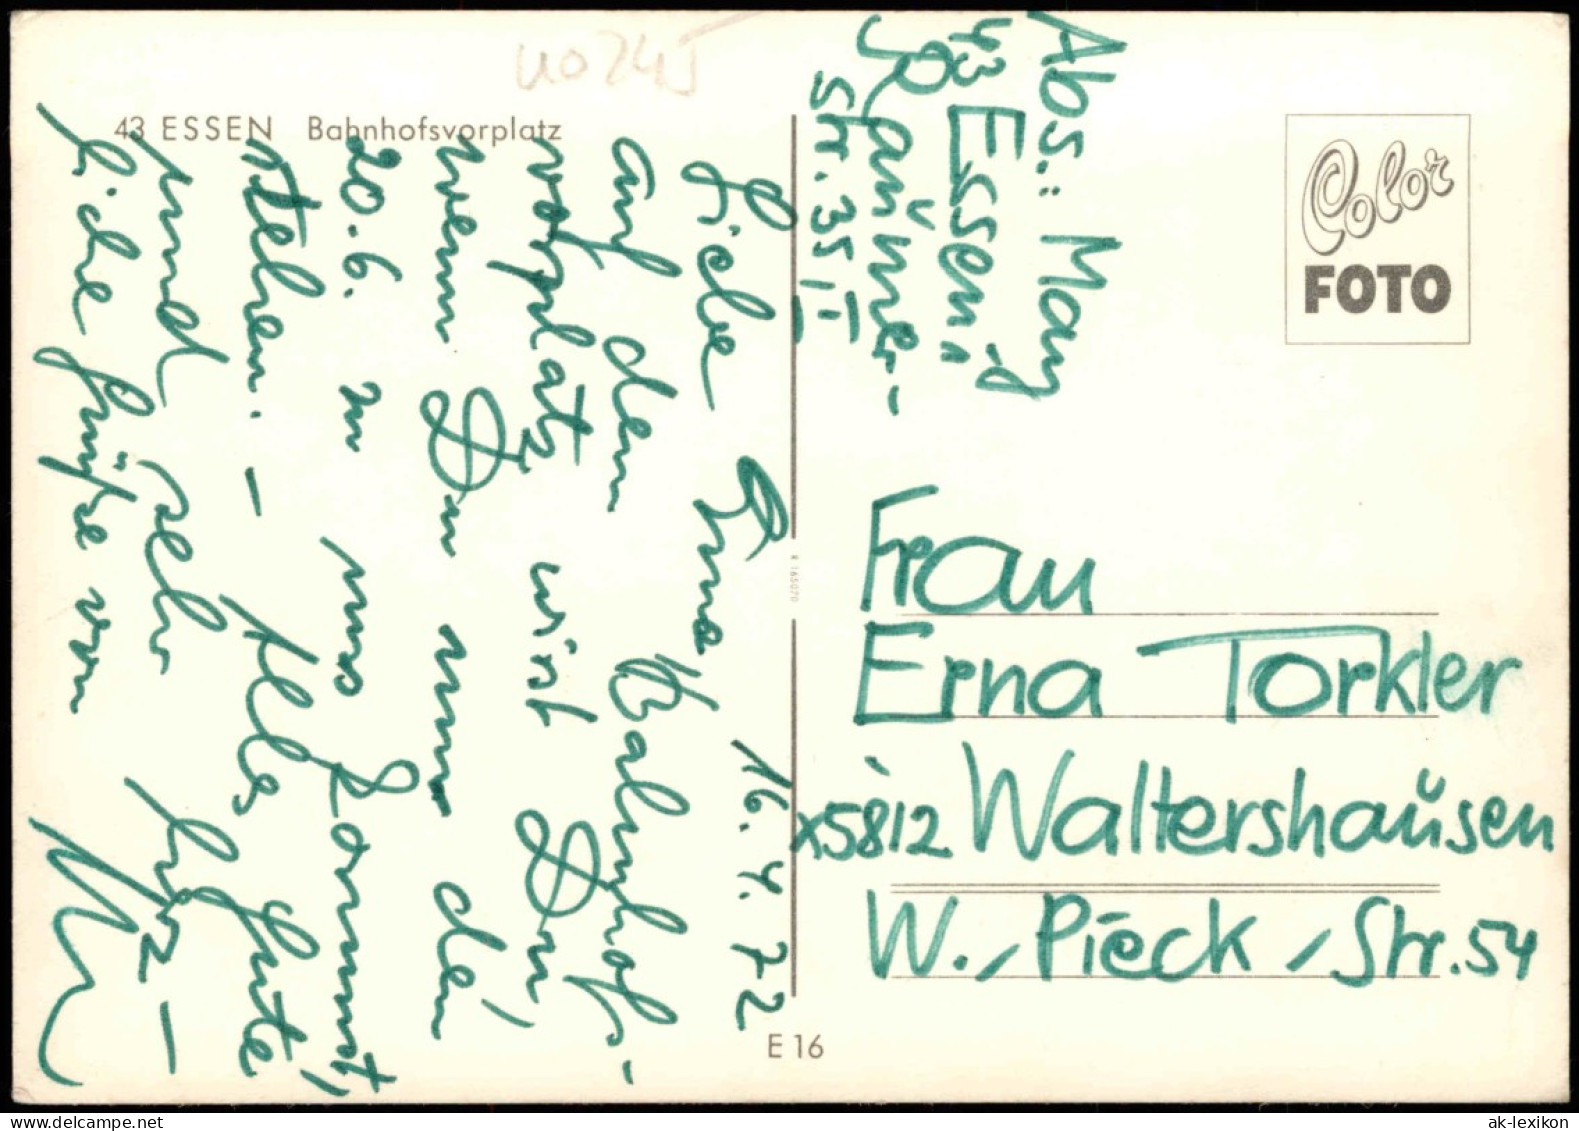 4074J
43 ESSEN Bahnhofsvorplatz
16. 4. 72
Liebe Erna
auf dem Bahnhofs-
vorplatz wirst Du,
wenn Du nun den
20. 6. zu uns kommst,
stehen. – Alles Gute
und sehr herz-
liche Grüße von
Abs.: May
43 Essen 1
Str. 35 II
Color
FOTO
Frau
Erna Torkler
X5812 Waltershausen
W.-Pieck-Str. 54
K 165070
E 16
ak-lexikon